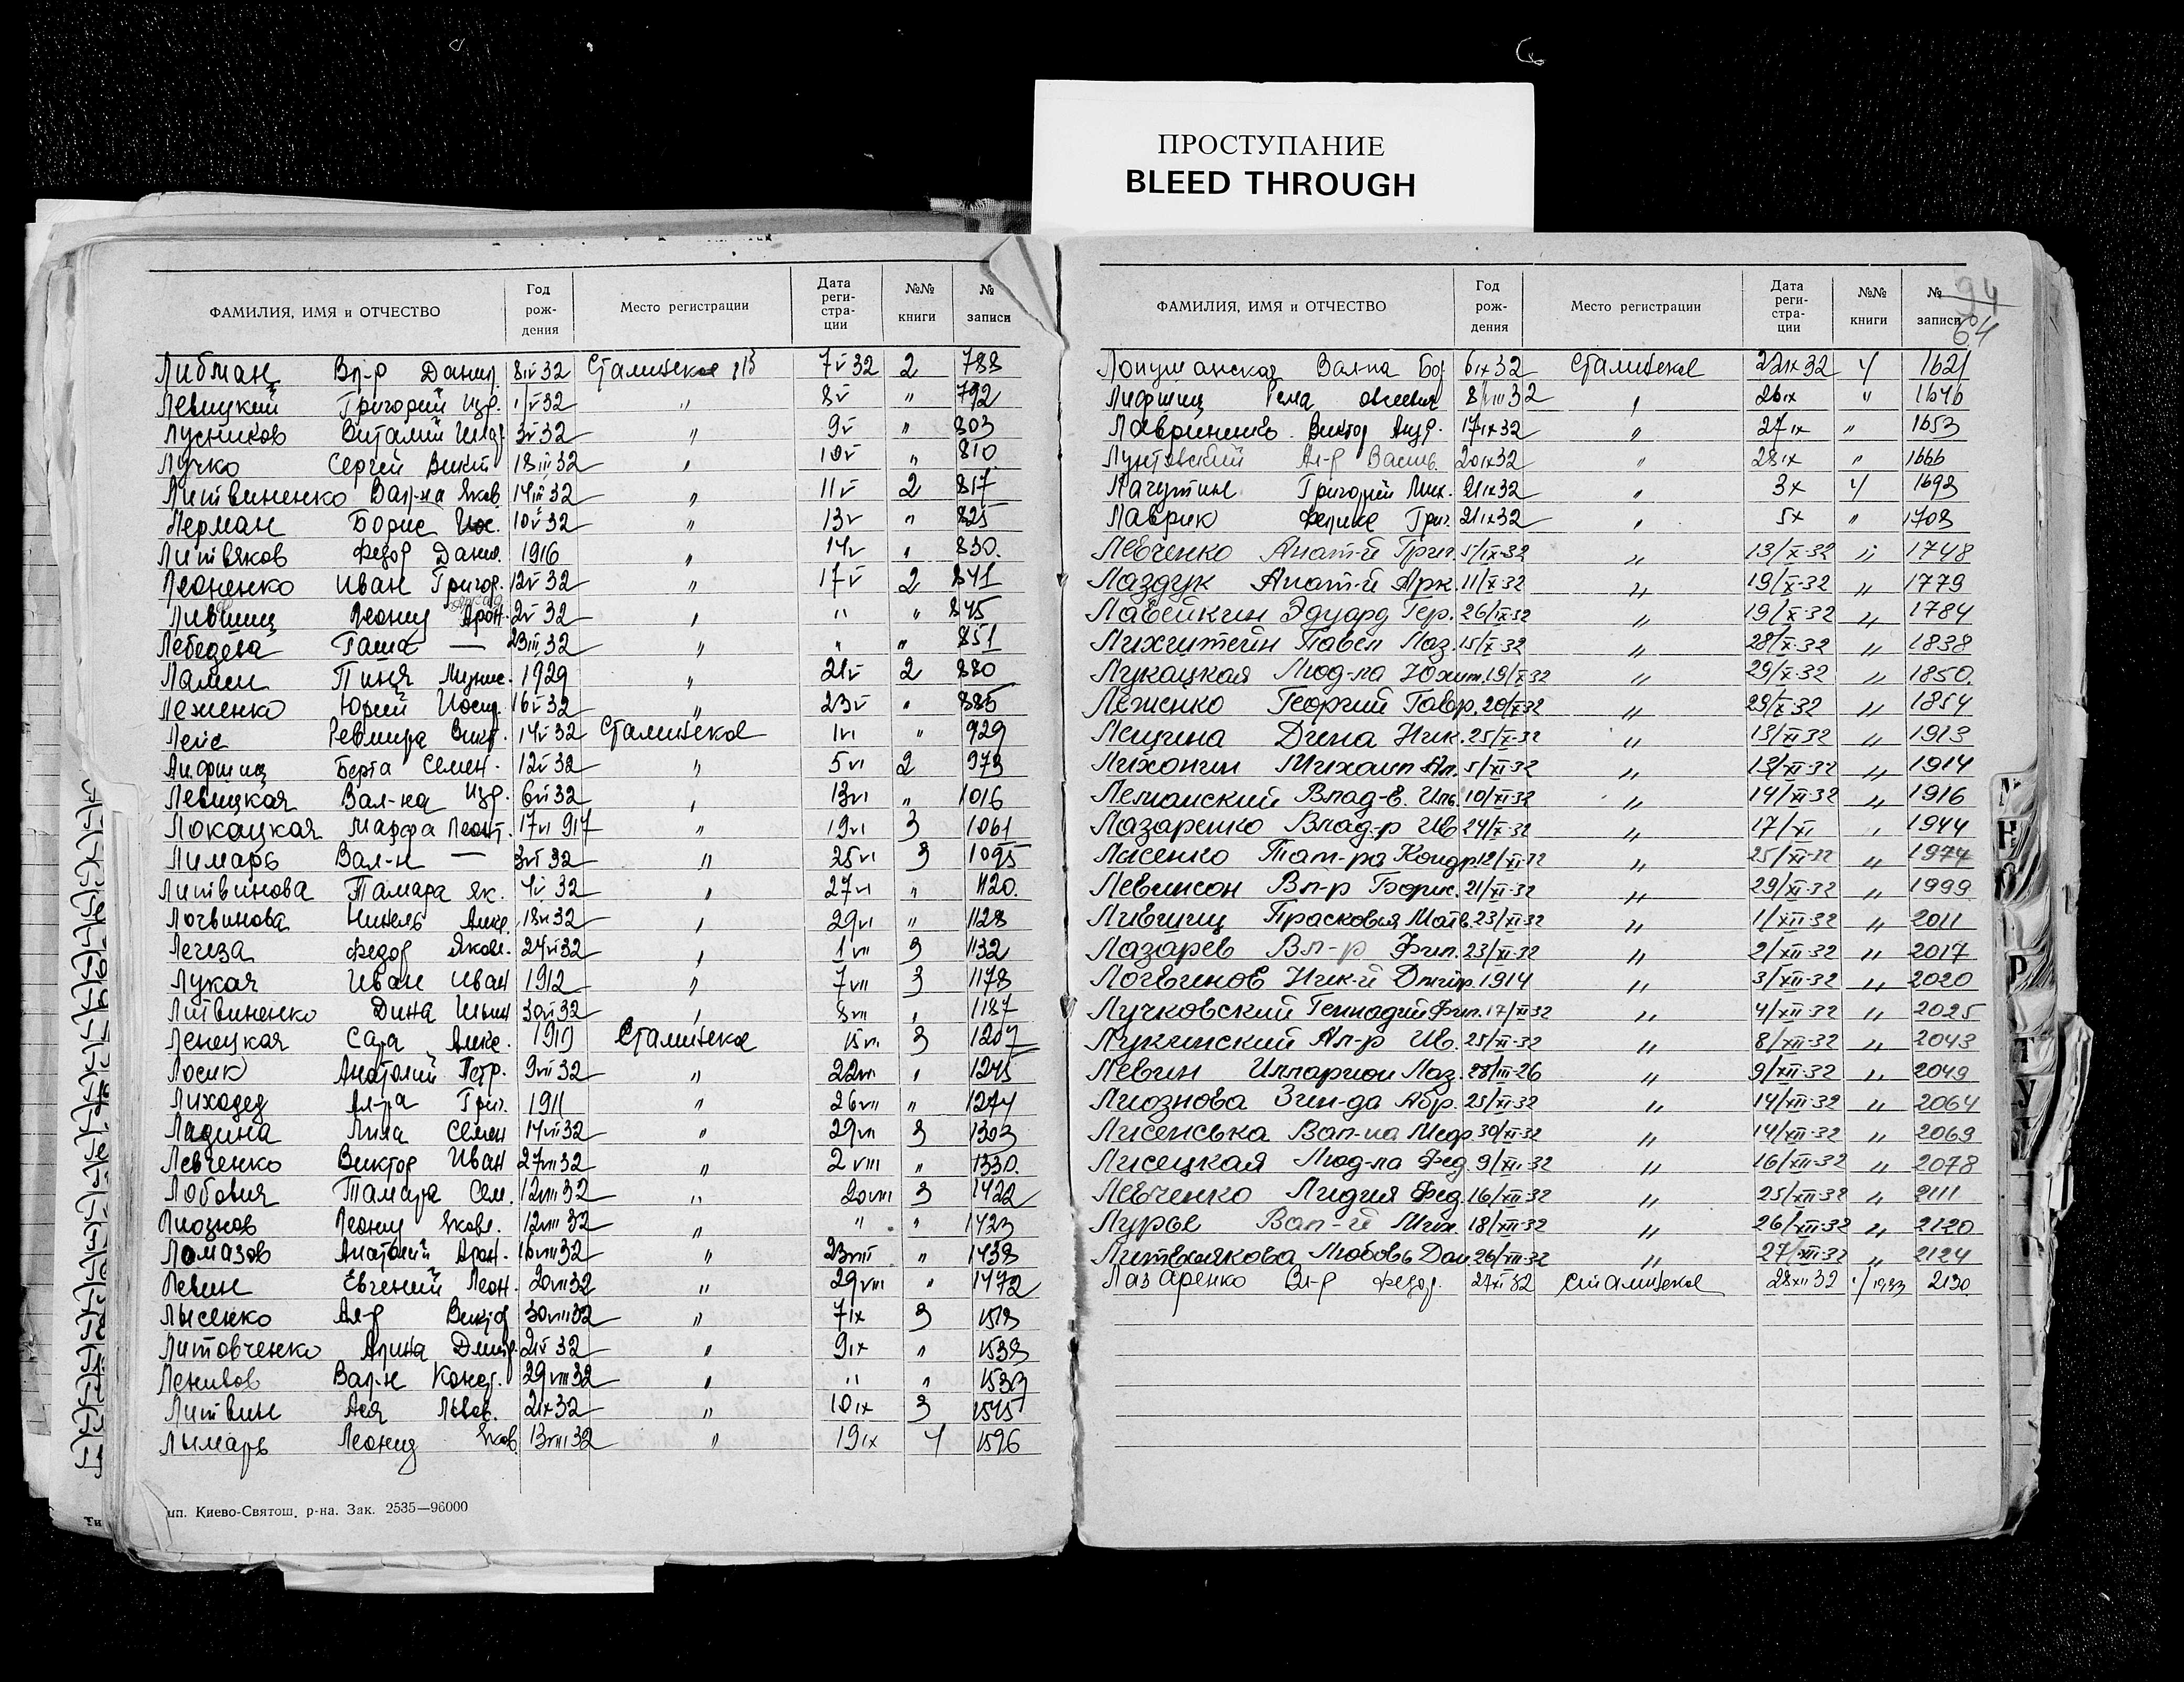 ПРОСТУПАНИЕ
BLEED THROUGH
ФАМИЛИЯ, ИМЯ и ОТЧЕСТВО Год рож- дения Место регистрации Дата реги- стра- ции №№ книги № записи
Либман Вл-р Данил. 8IV32 Сталинское 7V32 2 788
Левицкий Григорий Изр. 1/V32 " 8V " 792
Лусников Виталий 3V32 " 9V " 803
Лучко Сергей Викт 18III32 " 10V " 810
Литвиненко Вал-на Яков. 14III32 " 11V 2 817
Лерман Борис Иос. 10V32 " 13V " 825
Литвяков Федор Данил. 1916 " 14V " 830.
Леоненко Иван Григор. 12V32 " 17V 2 841
Лившиц Леонид Арон. 2V32 " " " 845
Лебедева Гаша — 23III32 " " " 851
Ламен Пиня 1929 " 21V 2 880
Леженко Юрий Иосиф. 16V32 " 23V " 885
Лейс Ревмира Викт. 14V32 Сталинское 1VI " 929
Лифшиц Берта Семен. 12V32 " 5VI 2 973
Левицкая Вал-на Изр. 6VI32 " 13VI " 1016
Локацкая Марфа Леонт. 17VI917 " 19VI 3 1061
Лимарь Вал-н — 3VI32 " 25VI 3 1095
Литвинова Тамара Як. 4V32 " 27VI " 1120.
Логвинова Нинель Алекс. 18VI32 " 29VI " 1128
Легеза Федор Яковл. 24VI32 " 1VII 3 1132
Лукач Иван Иван 1912 " 7VII 3 1178
Литвиненко Дина Ильин 30VI32 " 8VII " 1187
Ленецкая Сара Алекс. 1910 Сталинское 15VII 3 1207
Лосик Анатолий Петр. 9VII32 " 22VII " 1245
Лиходед Ал-ра Григ. 1911 " 26VII " 1274
Ладина Лила Семен 14VII32 " 29VII 3 1303
Левченко Виктор Иван 27VII32 " 2VIII " 1330.
Лобовия Тамара Сем. 12VIII32 " 20VIII 3 1422
Лиознов Леонид Яковл. 12VIII32 " " " 1423
Ломазов Анатолий Арон. 16VIII32 " 23VIII " 1438
Левин Евгений Леон. 20VIII32 " 29VIII " 1472
Лысенко Ал-р Виктор 30VIII32 " 7IX 3 1518
Литовченко Арина Дмитр. 2IV32 " 9IX " 1538
Ленивов Вал-н Конст. 29VIII32 " " " 1539
Литвин Ася Львов. 2IX32 " 10IX 3 1545
Лымарь Леонид Яков. 13VIII32 " 19IX 4 1596
ип. Киево-Святош. р-на. Зак. 2535—96000
94
64
ФАМИЛИЯ, ИМЯ и ОТЧЕСТВО Год рож- дения Место регистрации Дата реги- стра- ции №№ книги № записи
Лопушанская Вал-на Бор 6IX32 Сталинское 22IX32 4 1621
Лифшиц Рема Овсеевн 8/VIII32 " 26IX " 1646
Лавриненко Виктор Андр. 17IX32 " 27IX " 1653
Лунтовский Ал-р Василь. 20IX32 " 28IX " 1666
Лагутин Григорий Мих. 21IX32 " 3X 4 1693
Лаврик Феликс Григ. 21IX32 " 5X " 1708
Левченко Анат-й Григ. 5/IX-32 " 13/X-32 " 1748
Лаздук Анат-й Арк. 11/X-32 " 19/X-32 " 1779
Лавейкин Эдуард Гер. 26/IX-32 " 19/X-32 " 1784
Лихштейн Павел Лаз. 15/X-32 " 28/X-32 " 1838
Лукацкая Люд-ла Юхим. 19/X-32 " 29/X-32 " 1850.
Леженко Георгий Гавр. 20/X-32 " 29/X-32 " 1854
Лещина Дина Ник. 25/X-32 " 13/XI-32 " 1913
Лихонин Михаил Ал. 5/XI-32 " 13/XI-32 " 1914
Леманский Влад-в. Иль. 10/XI-32 " 14/XI-32 " 1916
Лазаренко Влад-р Ив 24/X-32 " 17/XI " 1944
Лысенко Там-ра Кондр 12/XI-32 " 25/XI-32 " 1974
Левинсон Вл-р Борис. 21/XI-32 " 29/XI-32 " 1999
Лившиц Прасковья Матв. 23/XI-32 " 1/XII-32 " 2011
Лазарев Вл-р Фил. 23/XI-32 " 2/XII-32 " 2017
Логвинов Ник-й Дмитр. 1914 " 3/XII-32 " 2020
Лучковский Геннадий Фил. 17/XI-32 " 4/XII-32 " 2025
Лукинский Ал-р Ив. 25/XI-32 " 8/XII-32 " 2043
Левин Илларион Лаз. 28/III-26 " 9/XII-32 " 2049
Лиознова Зин-да Абр. 25/XI-32 " 14/XII-32 " 2064
Лисенська Вал-на Меер 30/XI-32 " 14/XII-32 " 2069
Лисецкая Люд-ла Фед. 9/XII-32 " 16/XII-32 " 2078
Левченко Лидия Фед. 16/XII-32 " 25/XII-32 " 2111
Лурье Вал-й Мих. 18/XII-32 " 26/XII-32 " 2120
Литвинякова Любовь Дан 26/XII-32 " 27/XII-32 " 2124
Лазаренко Вл-р Федор. 27XI32 Сталинское 28XII32 4/1933 2130